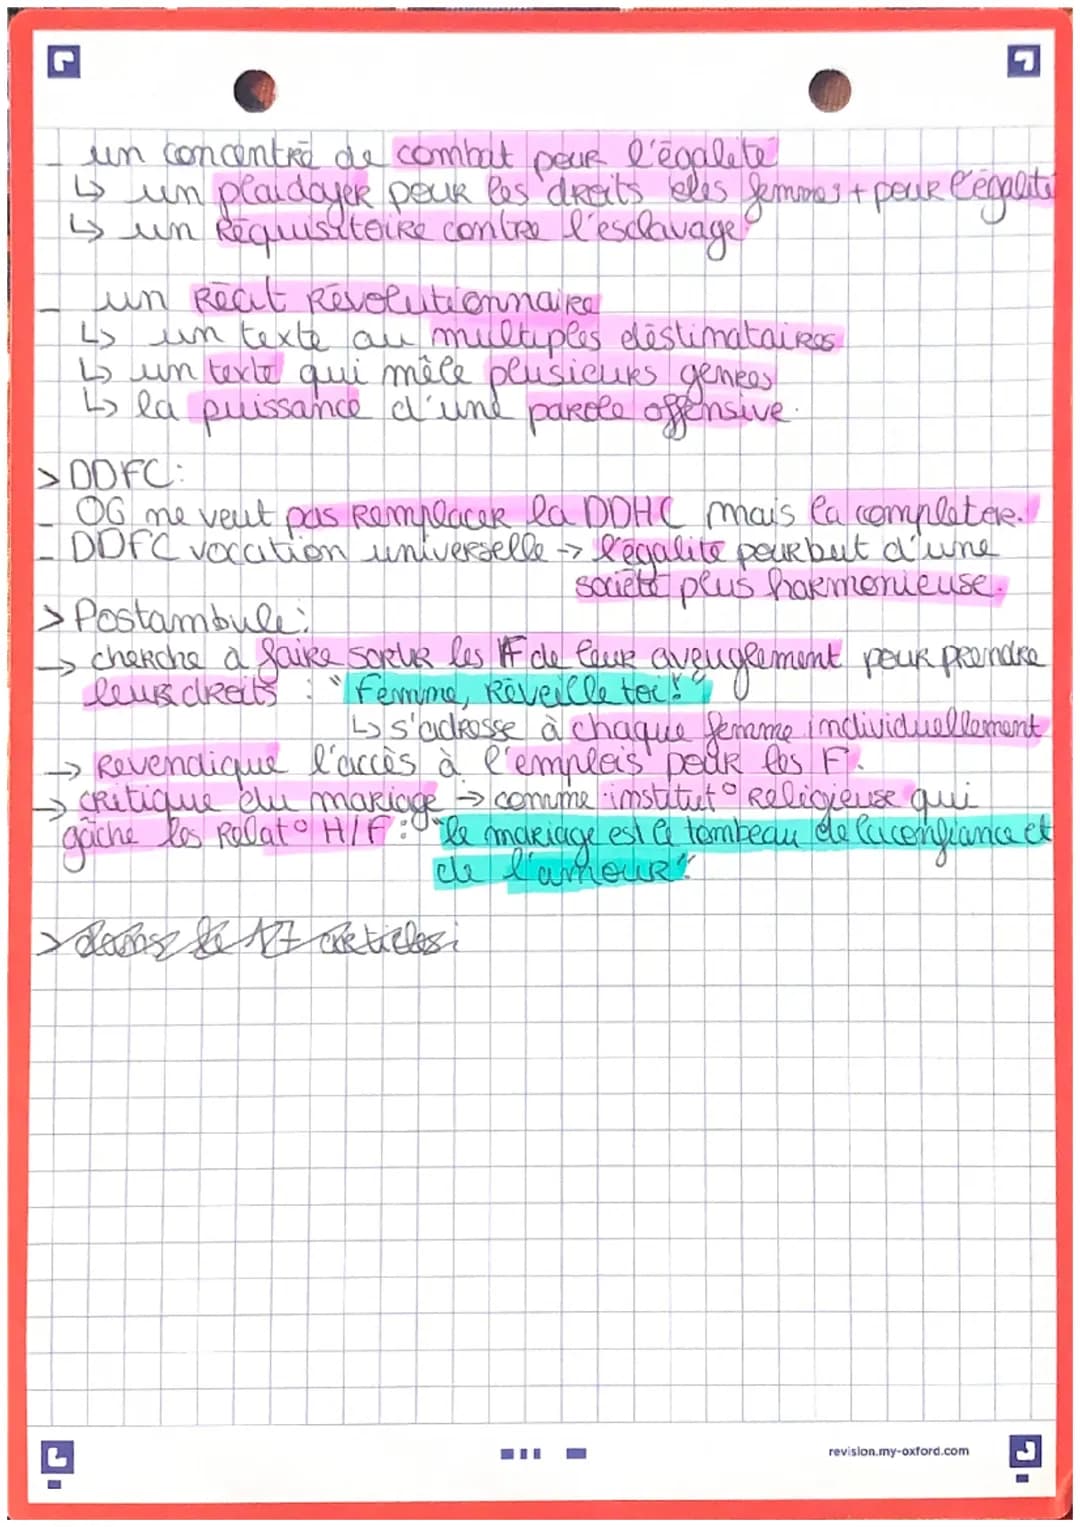 - un concentré de combat pour l'égalité
↳ un plaidoyer pour les droits des femmes + pour l'égalité
↳ un Réquisitoire contre l'esclavage
- un Récit Révolutionnaire
↳ un texte au multiples déstinataires
↳ un texte qui mêle plusieurs genres
↳ la puissance d'une parole offensive.
> DDFC:
- OG ne veut pas Remplacer la DDHC mais la completer.
- DDFC vocation universelle → l'égalité pour but d'une
société plus harmonieuse.
> Postambule:
→ cherche à faire sortir les F de leur aveuglement pour prendre
leurs droits : "Femme, Réveille toi!"
↳ s'adresse à chaque femme individuellement
→ Revendique l'accès à l'emplois pour les F.
→ critique du mariage → comme institut° Religieuse qui
gâche les Relat° H/F : "le mariage est le tombeau de la confiance et
de l'amour".
> dans le 17 articles:
revision.my-oxford.com